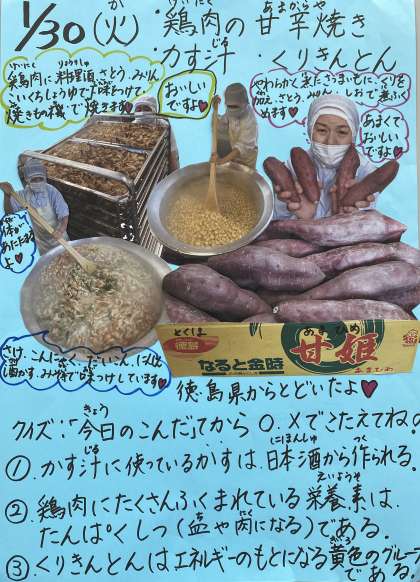 1/30(火)
鶏肉の甘辛焼き
かす汁
くりきんとん
鶏肉に料理酒、さとう、みりん、
こいくちしょうゆで下味をつけて、
焼きもの機で焼きます♥
おいしい
ですよ♥
やわらかく煮たさつまいもに、くりを
加え、さとう、みりん、しおで煮ふく
めます♥
あまくて
おいしい
ですよ♥
体が
あたたまる
よ♥
さけ、こんにゃく、だいこん、にんじん
酒かす、みそ等で味つけしています♥
とくしま
徳島
なると金時
甘姫
あまひめ
徳島県からとどいたよ♥
クイズ:「今日のこんだて」から○、×でこたえてね
①かす汁に使っているかすは、日本酒から作られる。
②鶏肉にたくさんふくまれている栄養素は、
たんぱくしつ(血や肉になる)である。
③くりきんとんはエネルギーのもとになる黄色のグループ
である。